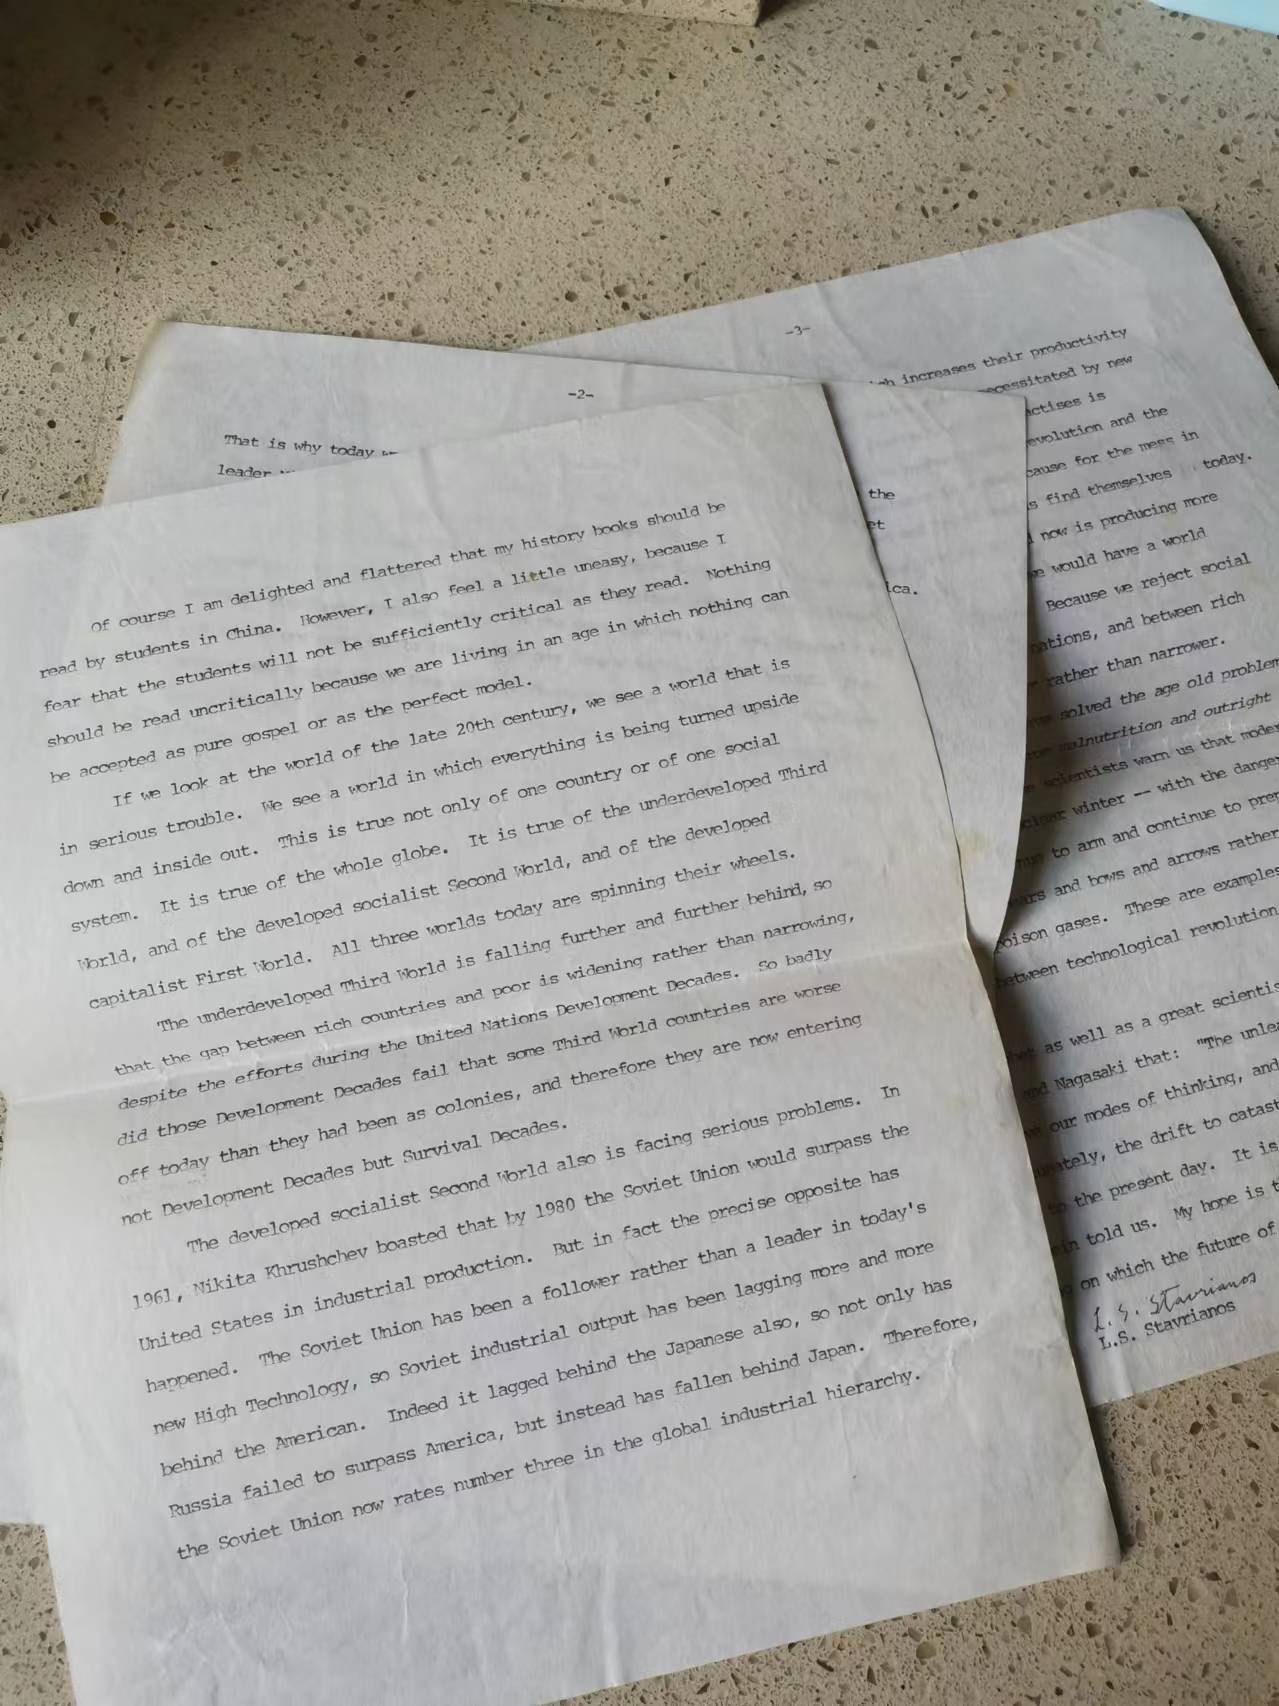 of course I am delighted and flattered that my history books should be
read by students in China. However, I also feel a little uneasy, because I
fear that the students will not be sufficiently critical as they read. Nothing
should be read uncritically because we are living in an age in which nothing can
be accepted as pure gospel or as the perfect model.
If we look at the world of the late 20th century, we see a world that is
in serious trouble. We see a world in which everything is being turned upside
down and inside out. This is true not only of one country or of one social
system. It is true of the whole globe. It is true of the underdeveloped Third
World, and of the developed socialist Second World, and of the developed
capitalist First World. All three worlds today are spinning their wheels.
The underdeveloped Third World is falling further and further behind, so
that the gap between rich countries and poor is widening rather than narrowing,
despite the efforts during the United Nations Development Decades. So badly
did those Development Decades fail that some Third World countries are worse
off today than they had been as colonies, and therefore they are now entering
not Development Decades but Survival Decades.
The developed socialist Second World also is facing serious problems. In
1961, Nikita Khrushchev boasted that by 1980 the Soviet Union would surpass the
United States in industrial production. But in fact the precise opposite has
happened. The Soviet Union has been a follower rather than a leader in today's
new High Technology, so Soviet industrial output has been lagging more and more
behind the American. Indeed it lagged behind the Japanese also, so not only has
Russia failed to surpass America, but instead has fallen behind Japan. Therefore,
the Soviet Union now rates number three in the global industrial hierarchy.
-2-
That is why today
leader
the
-3-
increases their productivity
necessitated by new
is
and the
cause for the mess in
find themselves today.
now is producing more
would have a world
Because we reject social
and between rich
rather than narrower.
solved the age old problem
malnutrition and outright
scientists warn us that
winter -- with the
to arm and continue to
and bows and arrows rather
poison gases. These are examples
between technological revolution
as well as a great
and Nagasaki that: "The
our modes of thinking, and
the drift to
the present day. It is
told us. My hope is
on which the future of
L. S. Stavrianos
L.S. Stavrianos